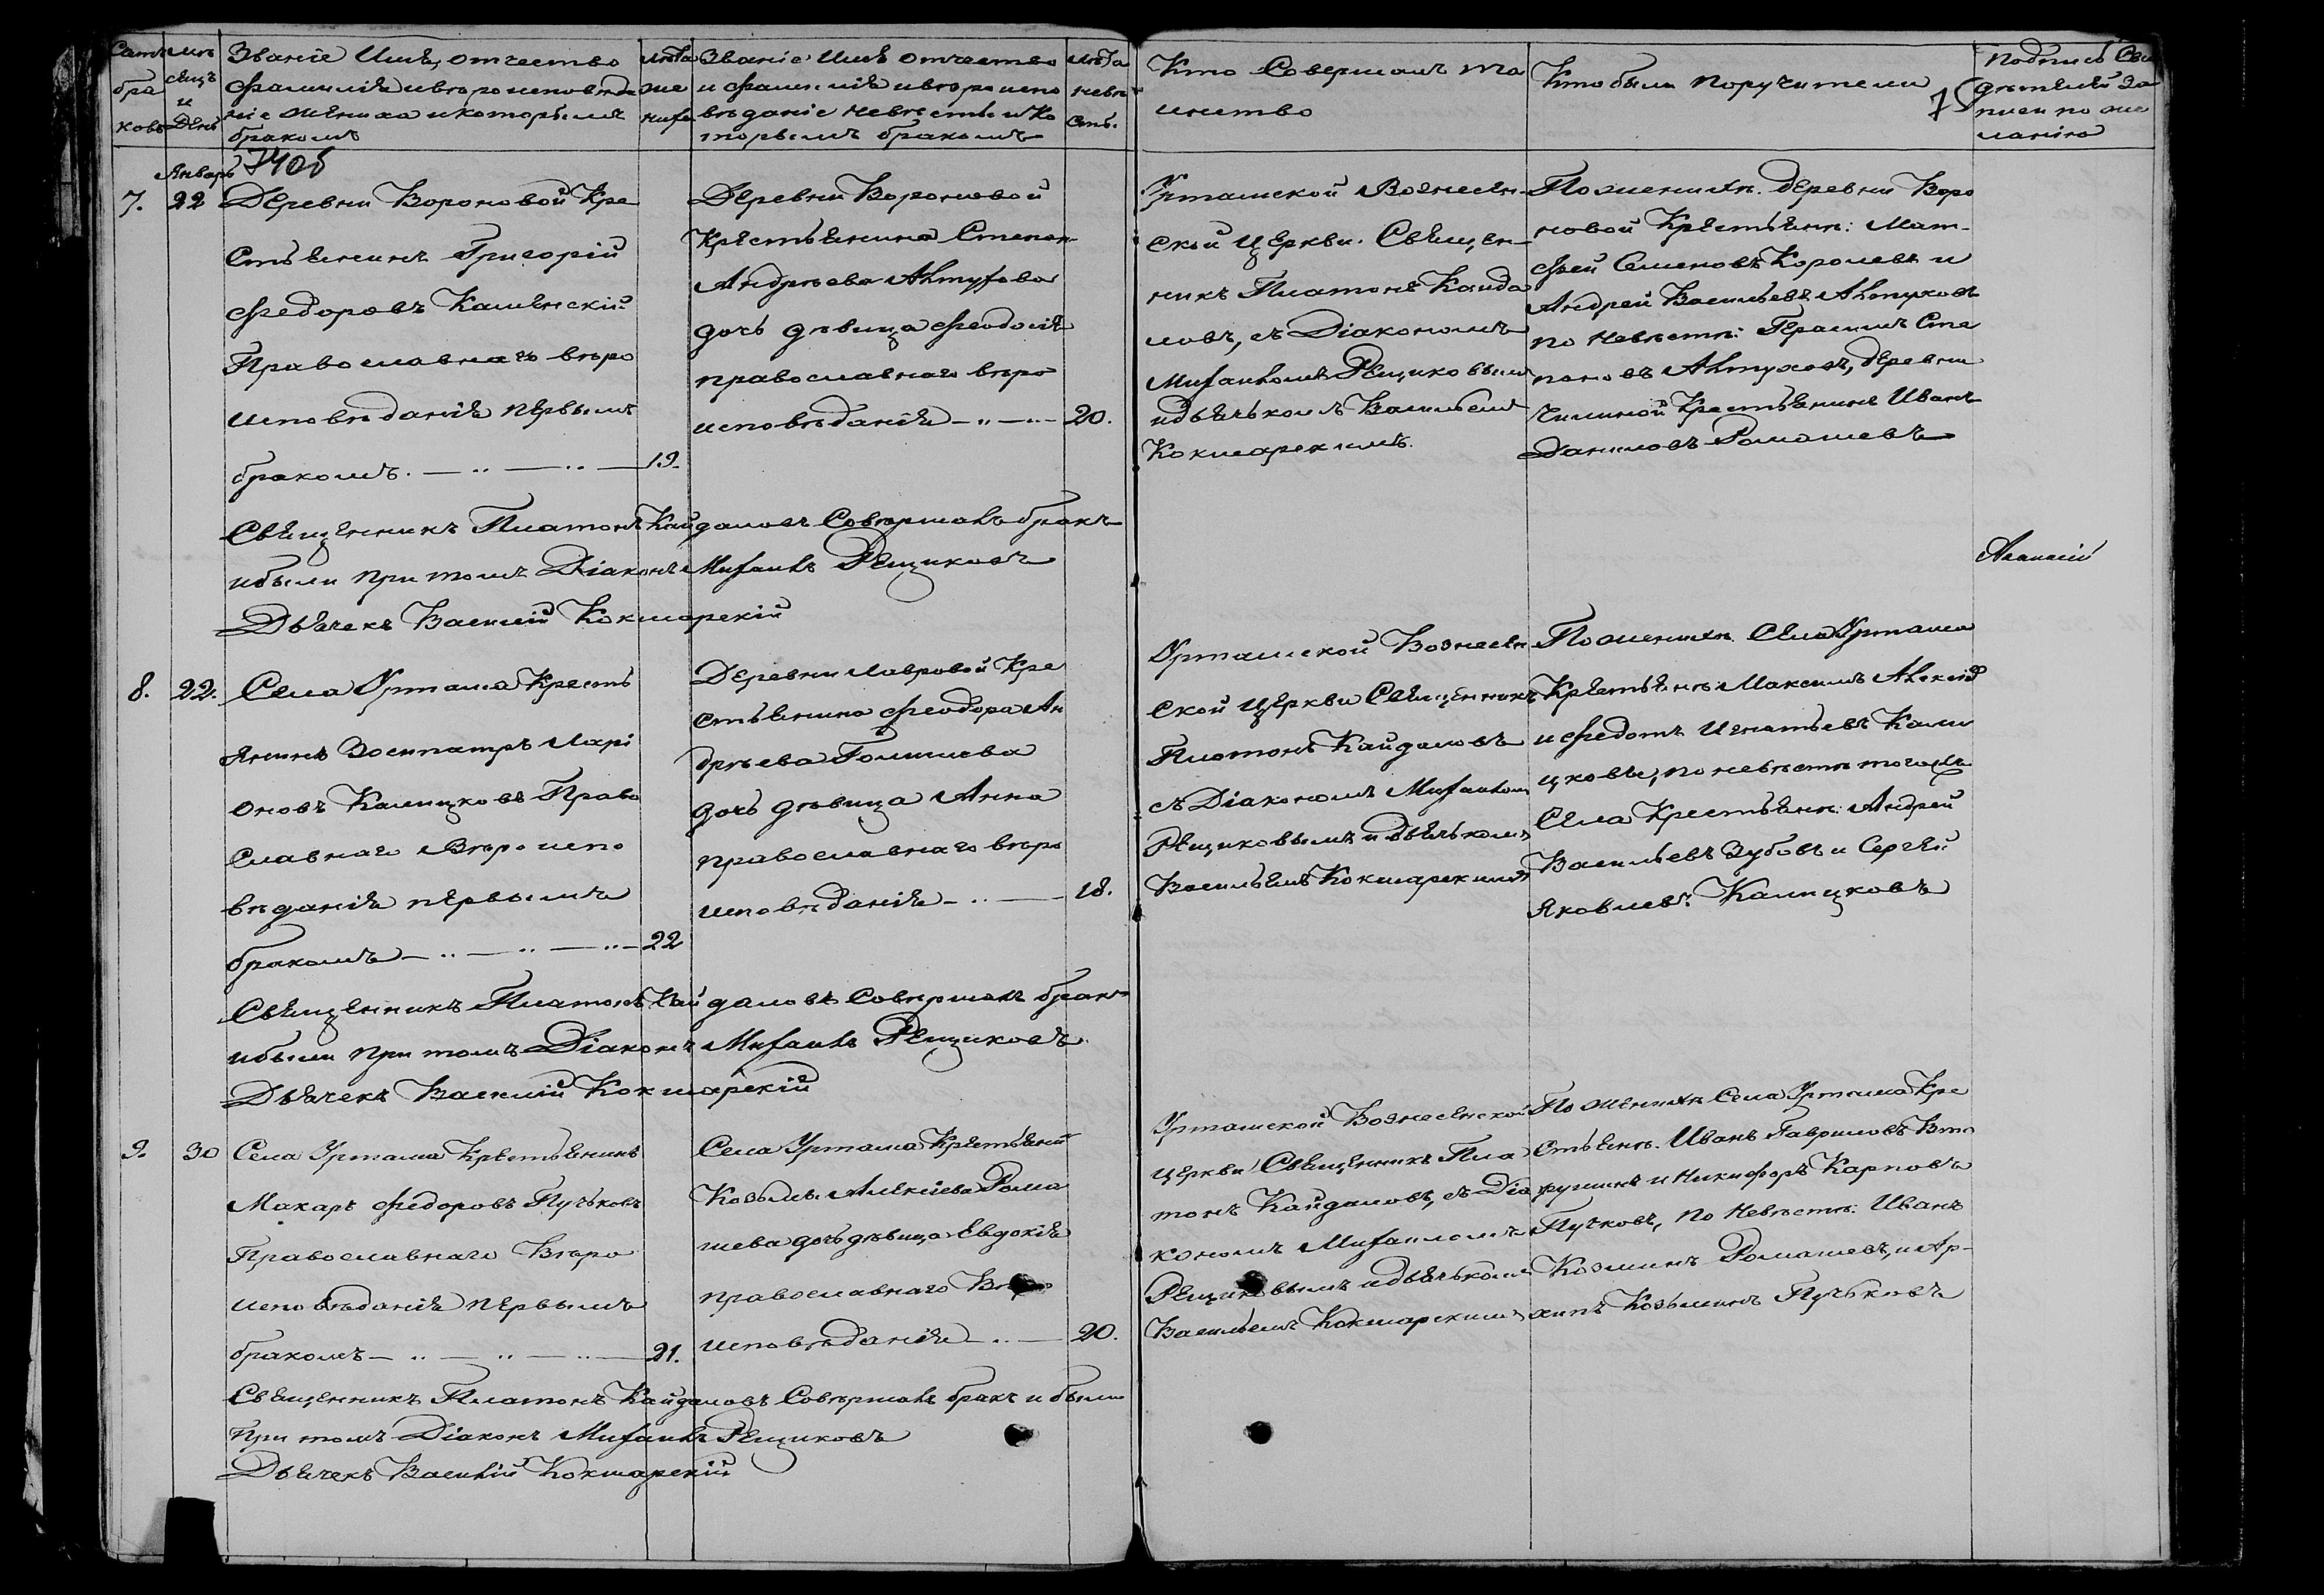 Счетъ бра ковъ
Мѣ сяцъ и день
Званіе Имя, отчество
фамилія ивѣроисповѣда
ніе жениха икоторымъ
бракомъ
Лѣта же ниха
Званіе Имя отчество
и фамилія ивѣроиспо
вѣданіе невѣсты иКо
торымъ бракомъ
Лѣта невѣ сты.
Кто Совершалъ Та
инство
Кто были поручители
Подпись Сви
дѣтелей за
писи по же
ланію
Январь
7. 22
Деревни Вороновой Кре
стьянинъ Григорій
Федоровъ Каменскій
Православнаго вѣро
исповѣданія первымъ
бракомъ. 19.
Деревни Вороновой
Крестьянина Степан
Андрѣева Алтухова
дочь дѣвица Феодосія
православнаго вѣро
исповѣданія 20.
Урташской Вознесен-
ской Церкви. Священ-
никъ Платонъ Кайда
ловъ, съ Діакономъ
Михаиломъ Рещиковым
идьячькомъ Васильемъ
Кокшарскимъ.
Пожених. деревни Воро
новой Крестьян: Мат-
фей Семеновъ Королевъ и
Андрей Васильевъ Алтуховъ
по невѣстѣ: Герасимъ Сте
пановъ Алтуховъ, деревни
Чилиной Крестьянинъ Иванъ
Даниловъ Ромашевъ
Священникъ Платонъ Кайдаловъ Совершалъ бракъ
ибыли при томъ Діаконъ Михаилъ Рещиковъ
Дьячекъ Василій Кокшарскій
8. 22.
Села Урташа Кресть
янинъ Зосипатръ Лари
оновъ Калицковъ Право
славнаго Вѣроиспо
вѣданія первымъ
бракомъ 22
Деревни Лавровой Кре
стьянина Феодора Ан
дрѣева Голишева
дочь дѣвица Анна
православнаго вѣро
исповѣданія 18.
Урташской Вознесен
ской Церкви Священникъ
Платонъ Кайдаловъ
съ Діакономъ Михаилом
Рещиковымъ идьячькомъ
Васильемъ Кокшарскимъ
Пожених. Села Урташа
Крестьян: Максимъ Алексѣ
и Федотъ Игнатьевъ Кали
цковы, поневѣстѣ тогожъ
Села Крестьян: Андрей
Васильевъ Зубовъ и Сергѣй
Яковлевъ Калицковъ
Священникъ Платонъ Кайдаловъ Совершалъ бракъ
ибыли при томъ Діаконъ Михаилъ Рещиковъ.
Дьячекъ Василій Кокшарскій
9. 30
Села Урташа Крестьянинъ
Макаръ Федоровъ Пучьковъ
Православнаго Вѣро
исповѣданія первымъ
бракомъ 21.
Села Урташа Крестьянин
Козьмы Алексѣева Рома
шева дочь дѣвица Евдокія
православнаго Вѣро
исповѣданія 20.
Урташской Вознесенской
церкви Священникъ Пла
тонъ Кайдаловъ, съ Діа
кономъ Михаиломъ
Рещиковымъ идьячькомъ
Васильемъ Кокшарскимъ
Пожених. Села Урташа Кре
стьян. Иванъ Гавриловъ Вто
рушинъ и Никифоръ Карповъ
Пучковъ, по Невѣстѣ: Иванъ
Козминъ Ромашевъ, и Ар-
хипъ Козьминъ Пучьковъ
Священникъ Платонъ Кайдаловъ Совершалъ бракъ и были
при томъ Діаконъ Михаилъ Рещиковъ
Дьячекъ Василій Кокшарскій